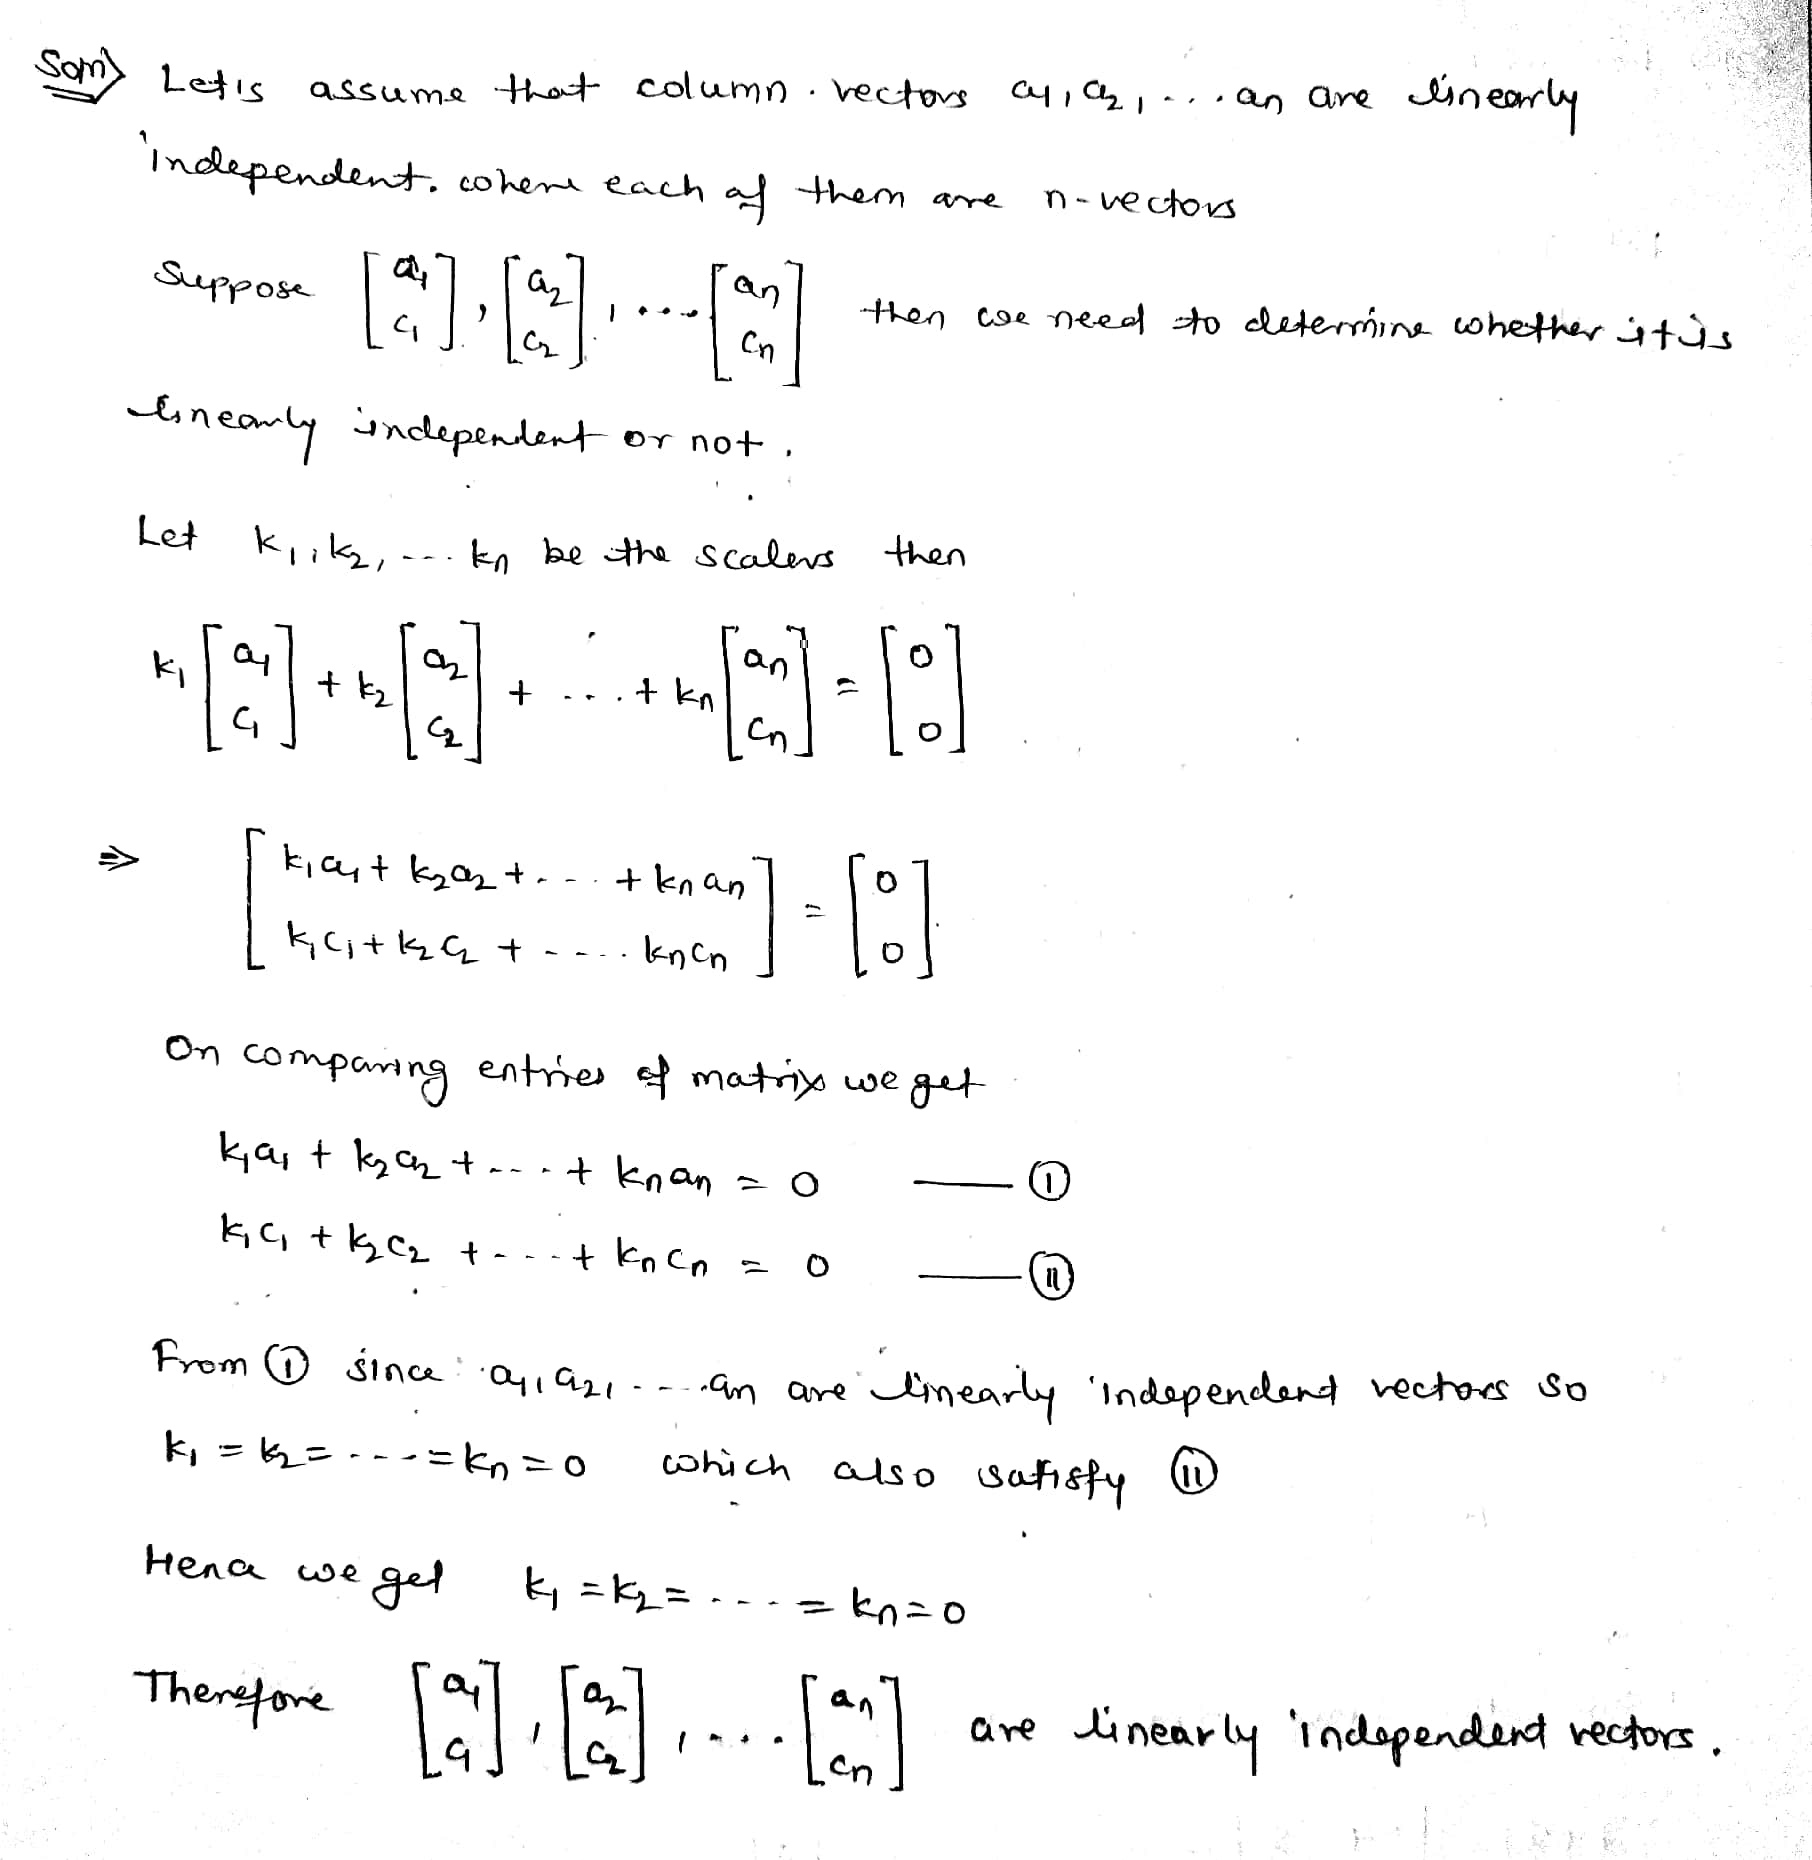 Soln) Let's assume that column vectors a1, a2, ... an are linearly
independent. where each of them are n-vectors
Suppose [a1 c1], [a2 c2], ... [an cn] then we need to determine whether it is
linearly independent or not.
Let k1, k2, --- kn be the scalers then
k1 [a1 c1] + k2 [a2 c2] + ... + kn [an cn] = [0 0]
⇒ [k1a1 + k2a2 + ... + knan
k1c1 + k2c2 + .... kncn] = [0 0]
On comparing entries of matrix we get
k1a1 + k2a2 + ... + knan = 0 — (I)
k1c1 + k2c2 + --- + kncn = 0 — (II)
From (I) since a1, a2, ... an are linearly independent vectors so
k1 = k2 = ---- = kn = 0 which also satisfy (II)
Hence we get k1 = k2 = ---- = kn = 0
Therefore [a1 c1], [a2 c2], ... [an cn] are linearly independent vectors.